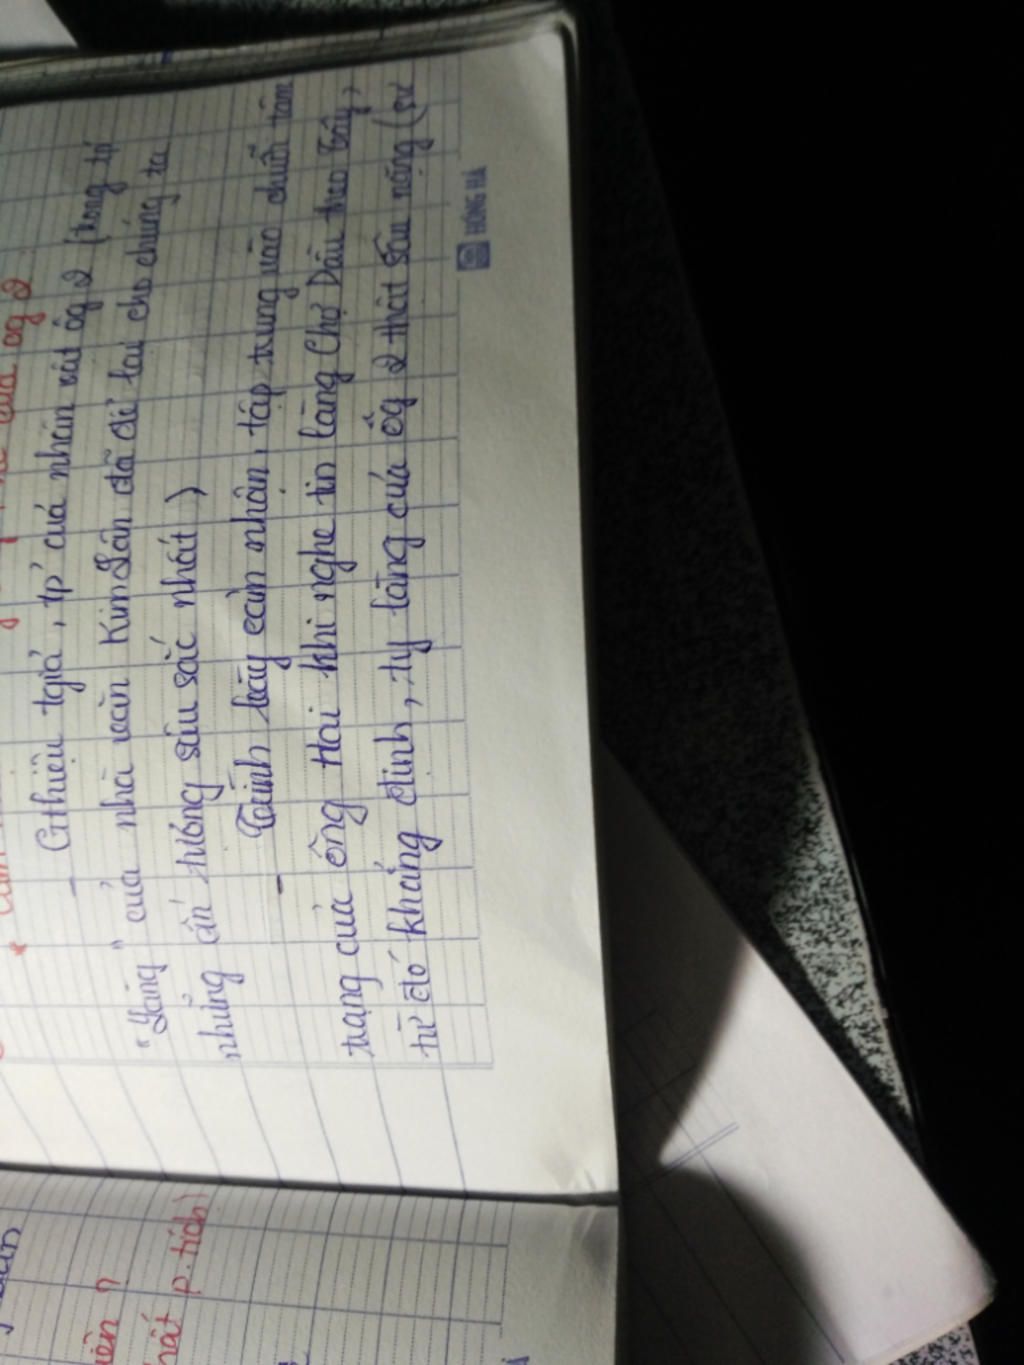 của ôg 2
- Gthiệu tgiả, tp' của nhân vật ôg 2 (trong tp
"Làng" của nhà văn Kim Lân đã để lại cho chúng ta
những ấn tượng sâu sắc nhất)
- Trình bày cảm nhận, tập trung vào chuỗi tâm
trạng của ông Hai khi nghe tin làng Chợ Dầu theo Tây,
từ đó khẳng định, ty làng của ôg 2 thật sâu nặng (sv
HỒNG HÀ
p. tích)